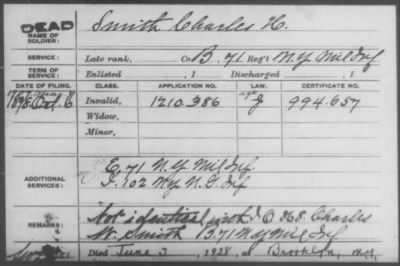 DEAD Smith Charles H.
NAME OF SOLDIER:
SERVICE: Late rank, Co. B, 71 Reg't N.Y. Mil Inf
TERM OF SERVICE: Enlisted , 1 Discharged , 1
DATE OF FILING. CLASS. APPLICATION NO. LAW. CERTIFICATE NO.
1898 Oct. 6 Invalid, 1210.386 age J 994.657
Widow,
Minor,
ADDITIONAL SERVICES: E, 71 N.Y. Mil Inf.
I. 102 N.Y. N.G. Inf
REMARKS: Not identical with 868. Charles
W. Smith B. 71 N.Y. Mil Inf
Died June 3, 1928, at Brooklyn, N.Y.